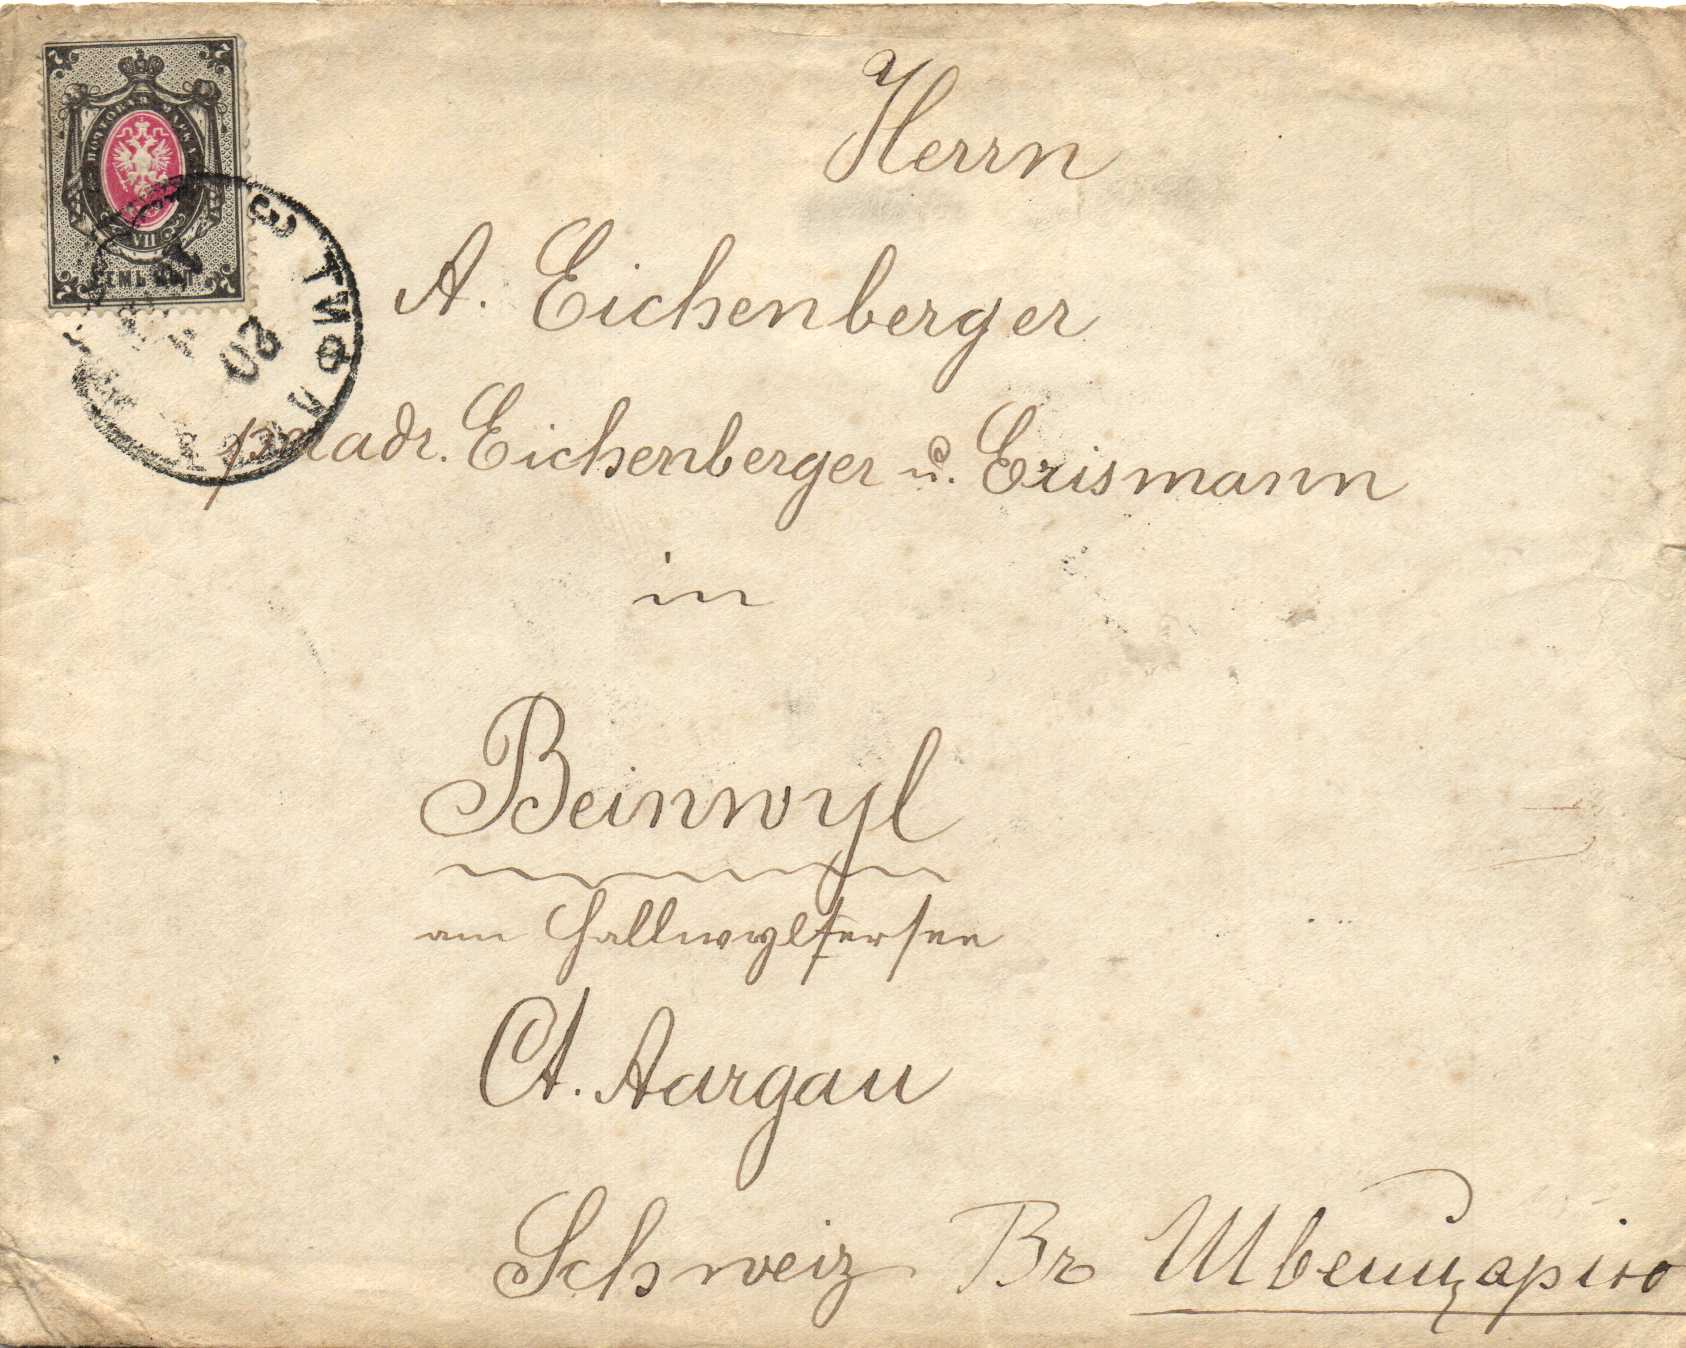 ПОЧТОВАЯ МАРКА
VII
7
ТИФЛ
20
Herrn
A. Eichenberger
peradr. Eichenberger u. Erismann
in
Beinwyl
am Hallwylersee
Ct. Aargau
Schweiz Въ Швейцарію